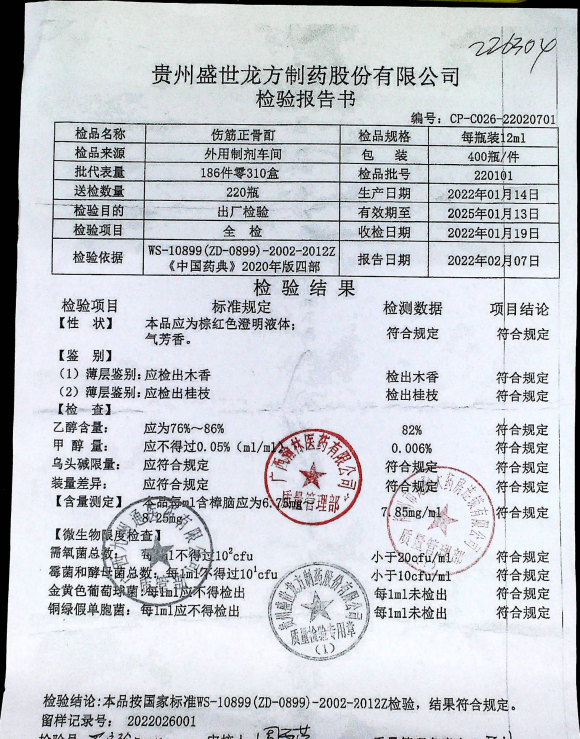 226304
贵州盛世龙方制药股份有限公司
检验报告书
编号：CP-C026-22020701
检品名称 伤筋正骨酊 检品规格 每瓶装12ml
检品来源 外用制剂车间 包 装 400瓶/件
批代表量 186件零310盒 检品批号 220101
送检数量 220瓶 生产日期 2022年01月14日
检验目的 出厂检验 有效期至 2025年01月13日
检验项目 全 检 收检日期 2022年01月19日
检验依据 WS-10899(ZD-0899)-2002-2012Z 报告日期 2022年02月07日
《中国药典》2020年版四部
检 验 结 果
检验项目 标准规定 检测数据 项目结论
【性 状】 本品应为棕红色澄明液体； 符合规定 符合规定
气芳香。
【鉴 别】
（1）薄层鉴别：应检出木香 检出木香 符合规定
（2）薄层鉴别：应检出桂枝 检出桂枝 符合规定
【检 查】
乙醇含量： 应为76%～86% 82% 符合规定
甲 醇 量： 应不得过0.05%（ml/ml） 0.006% 符合规定
乌头碱限量： 应符合规定 符合规定 符合规定
装量差异： 应符合规定 符合规定 符合规定
【含量测定】 本品每ml含樟脑应为6.75mg 7.85mg/ml 符合规定
8.25mg
【微生物限度检查】
需氧菌总数： 每1ml不得过10²cfu 小于20cfu/ml 符合规定
霉菌和酵母菌总数：每1ml不得过10¹cfu 小于10cfu/ml 符合规定
金黄色葡萄球菌：每1ml应不得检出 每1ml未检出 符合规定
铜绿假单胞菌： 每1ml应不得检出 每1ml未检出 符合规定
质量管理部
贵州盛世龙方制药股份有限公司
质量检验专用章
（1）
检验结论：本品按国家标准WS-10899(ZD-0899)-2002-2012Z检验，结果符合规定。
留样记录号： 2022026001